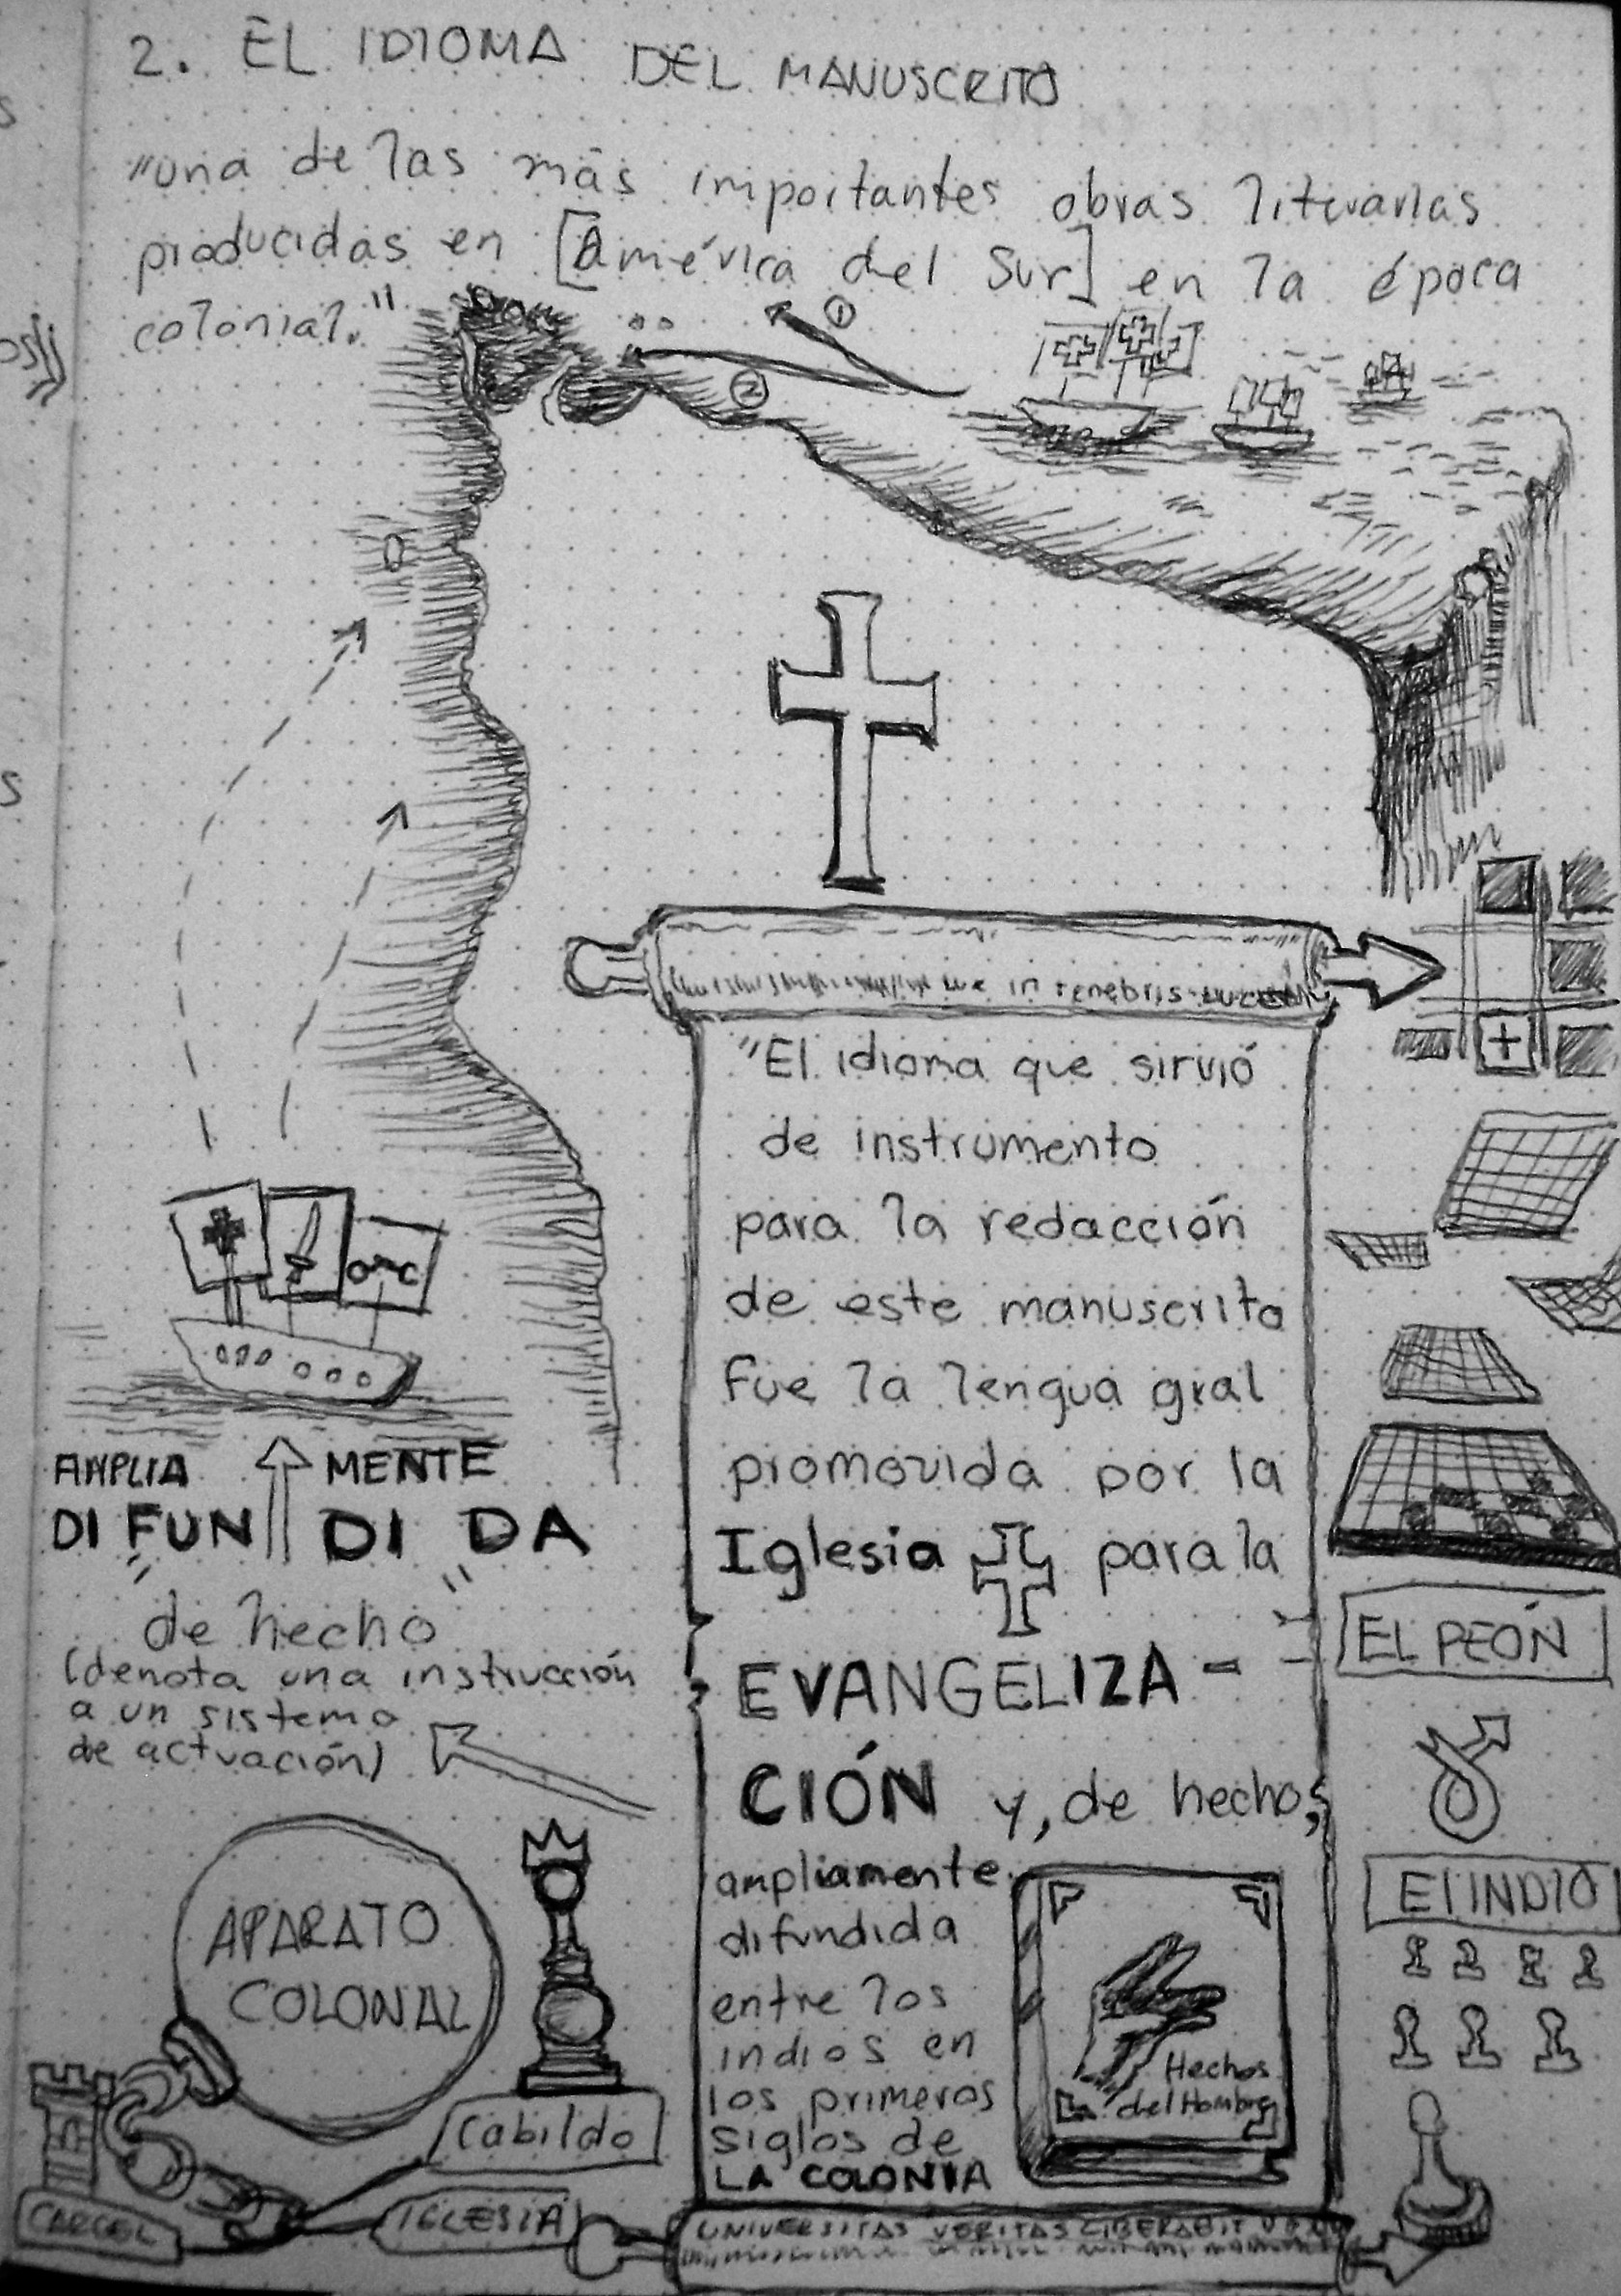 2. EL IDIOMA DEL MANUSCRITO
"una de las más importantes obras literarias
producidas en [América del Sur] en la época
colonial."
1
2
in tenebris
"El idioma que sirvió
de instrumento
para la redacción
de este manuscrito
fue la lengua gral
promovida por la
Iglesia para la
EVANGELIZA-
CIÓN y, de hecho,
ampliamente
difundida
entre los
indios en
los primeros
siglos de
LA COLONIA
Hechos
del Hombre
AMPLIA MENTE
DI FUN DI DA
"de hecho"
(denota una instrucción
a un sistema
de actuación)
APARATO
COLONAL
Cabildo
CARCEL
IGLESIA
UNIVERSITAS VERITAS LIBERABIT
EL PEÓN
El INDIO